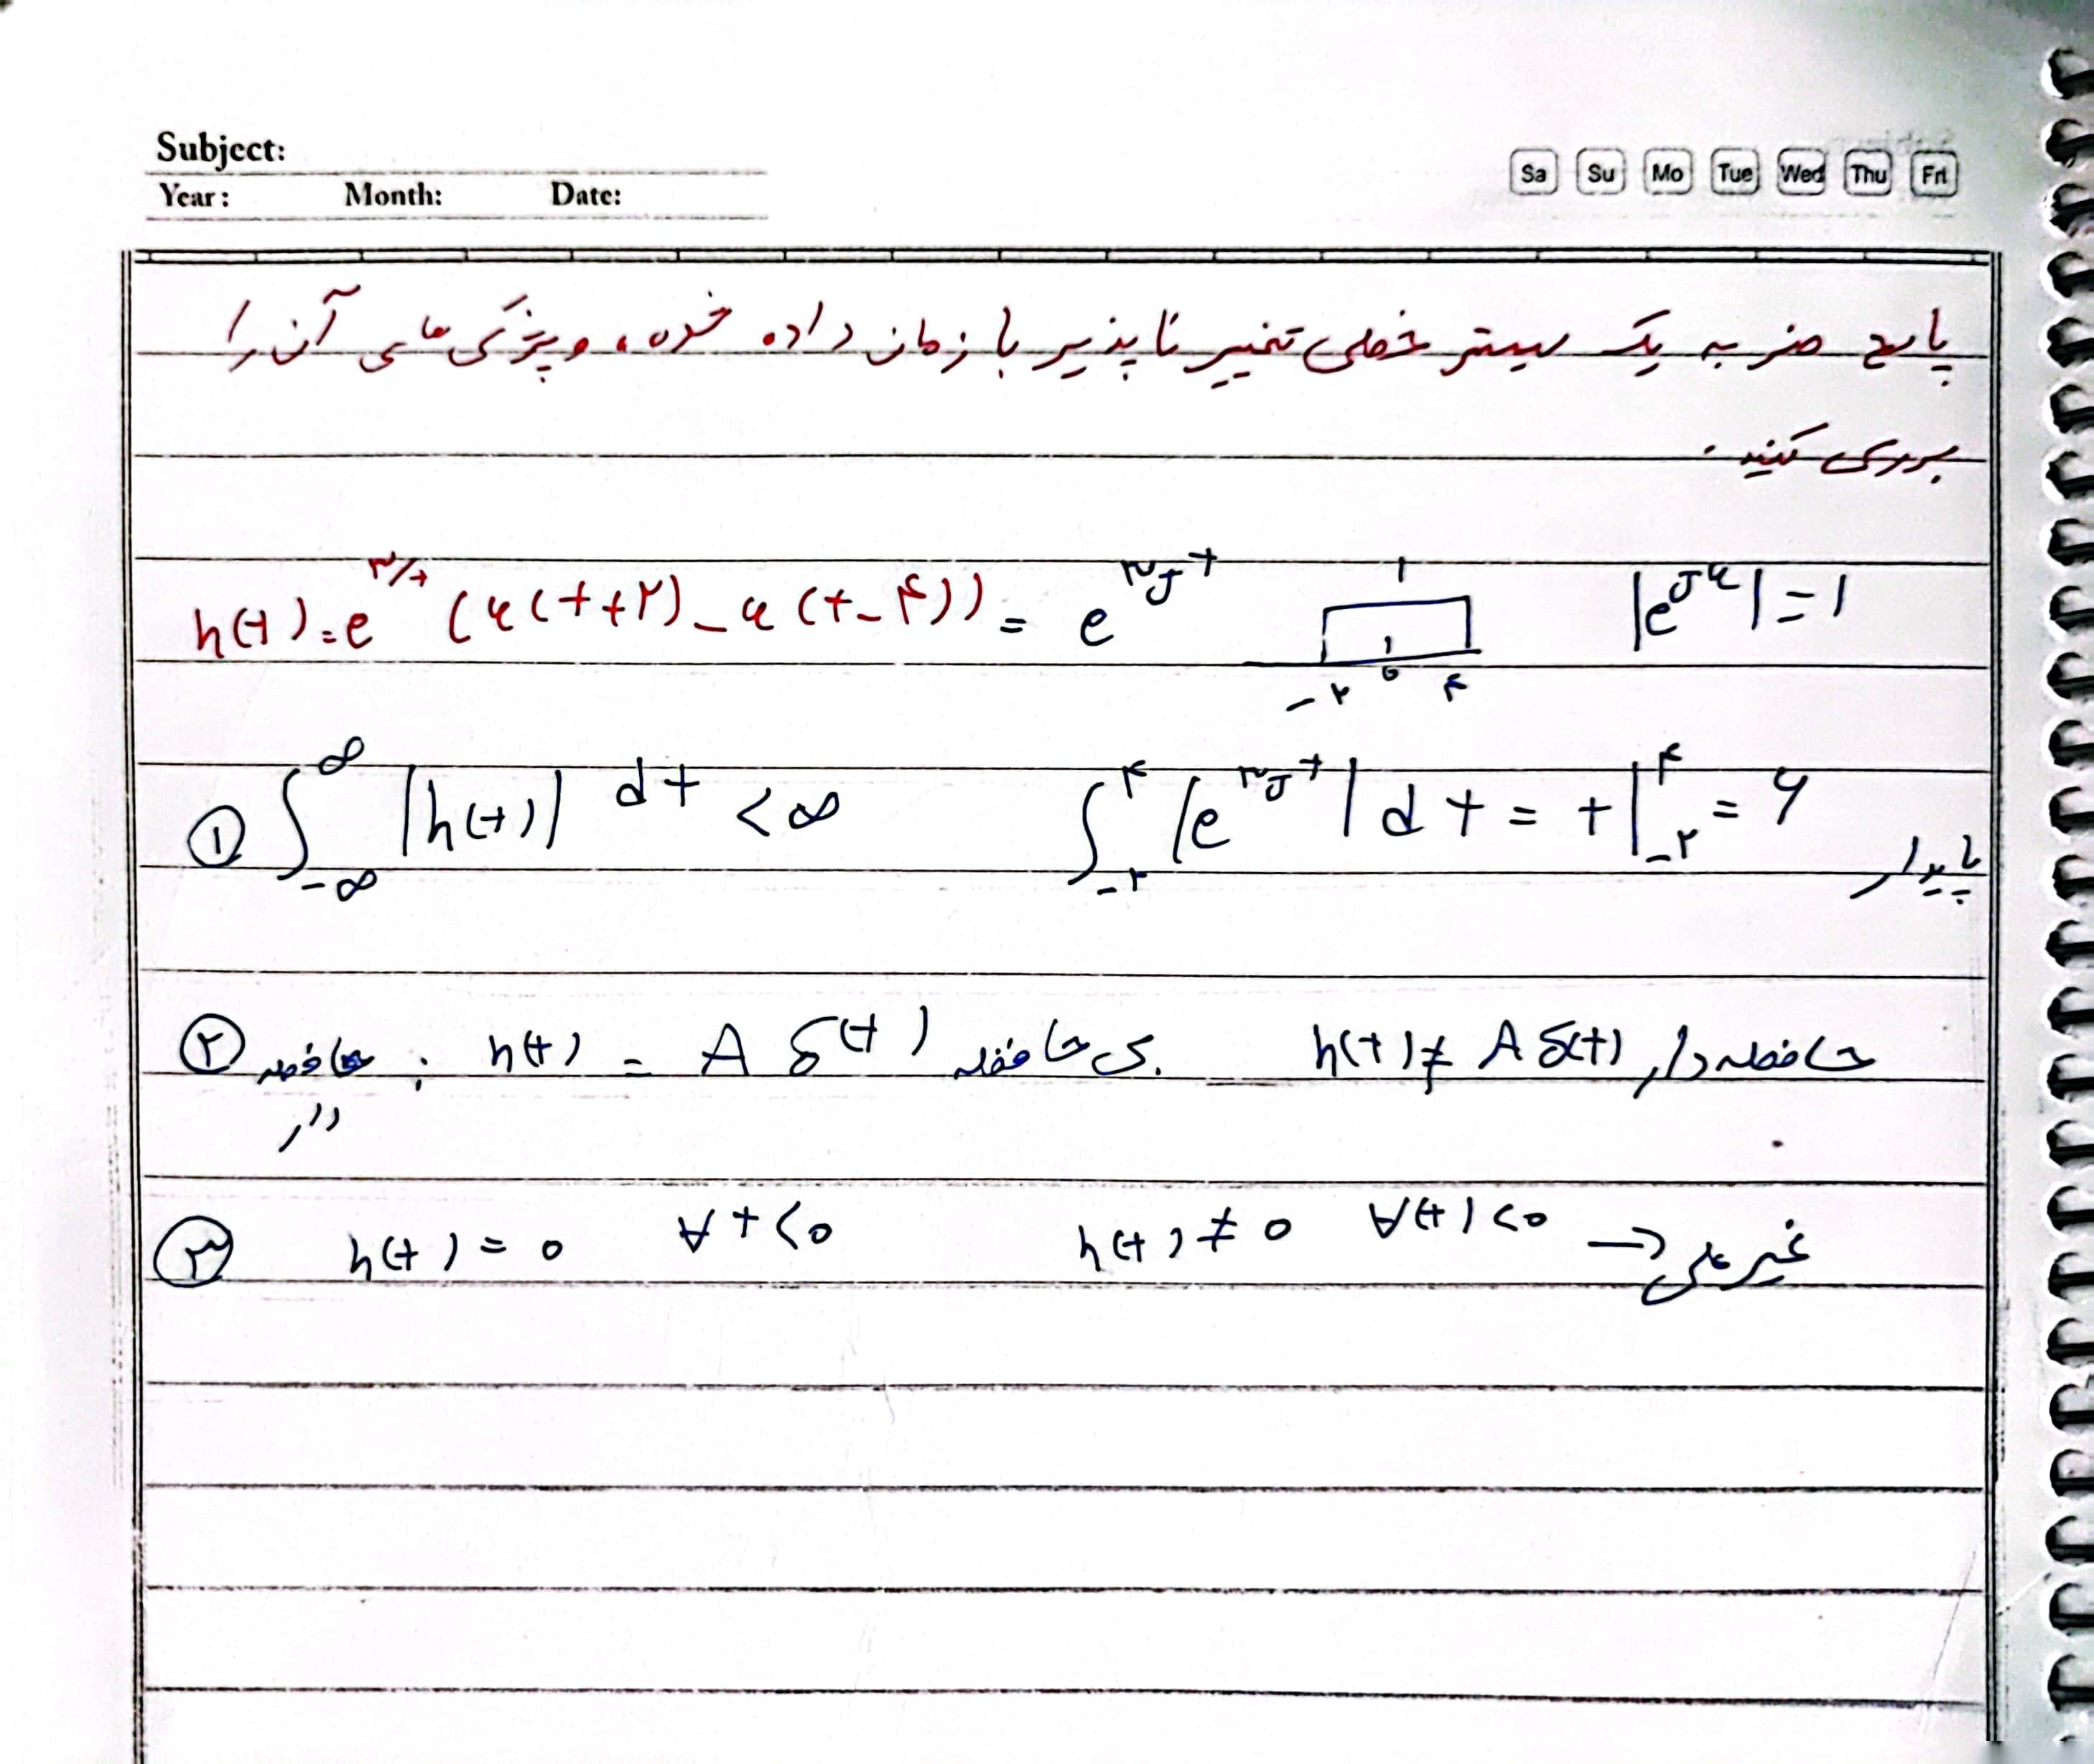 Subject:
Year: Month: Date:
Sa Su Mo Tue Wed Thu Fri
پاسخ ضربه یک سیستم خطی تغییر ناپذیر با زمان داده شده، ویژگی های آن را
بررسی کنید.
h(t)=e^{۳jt} (u(t+۲)-u(t-۴)) = e^{۳jt} ۱ -۲ ۰ ۴ |e^{ju}|=۱
① ∫_{-∞}^{∞} |h(t)| dt <∞ ∫_{-۲}^{۴} |e^{۳jt}| dt = t|_{-۲}^{۴} = ۶ پایدار
② حافظه دار : h(t) = A δ(t) بی حافظه h(t) ≠ A δ(t) حافظه دار
③ h(t) = ۰ ∀ t<۰ h(t) ≠ ۰ ∀(t)<۰ → غیر علی